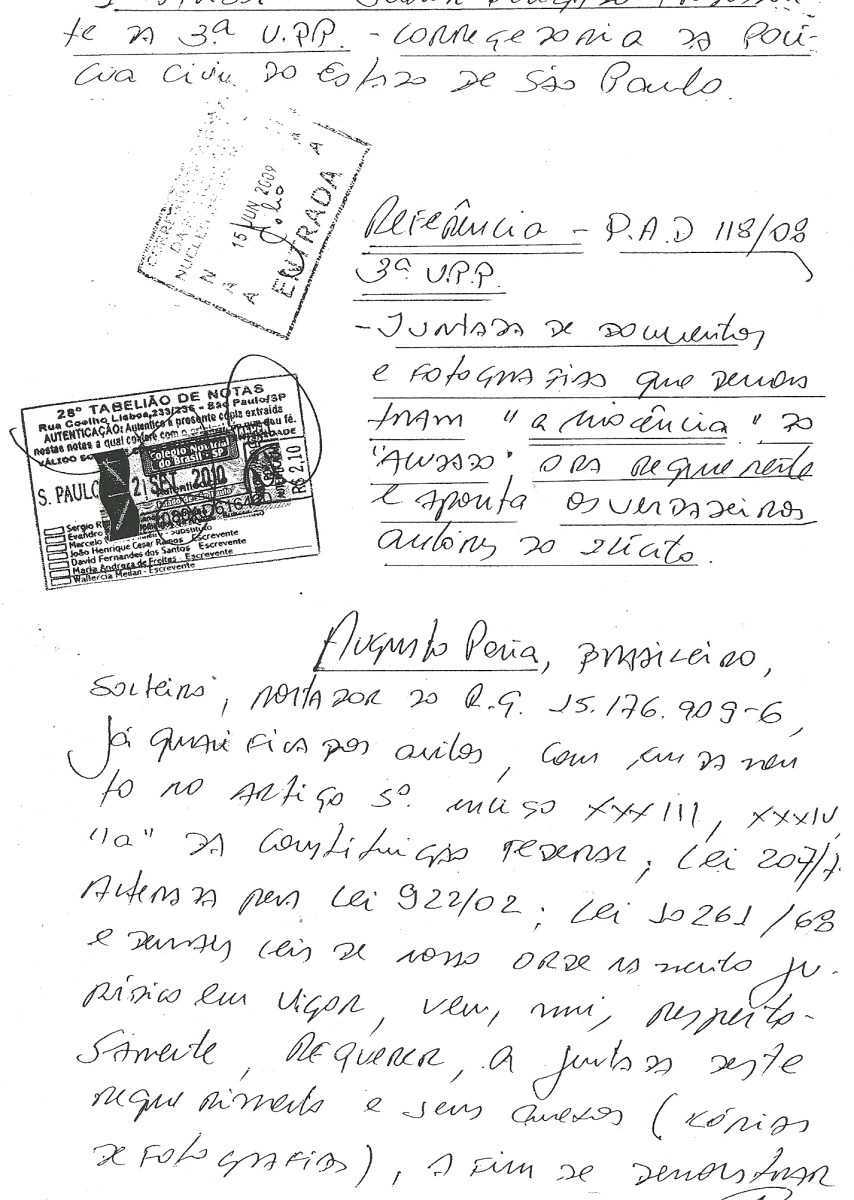 te da 3ª U.P.P. - Corregedoria da Polí-
cia Civil do Estado de São Paulo.
15 JUN 2009
ENTRADA
Referência - P.A.D 118/08
3ª U.P.P.
- Juntada de documentos
e fotografias que demons
tram "a inocência" do
"Acusado" ora requerente
e aponta os verdadeiros
autores do ilícito.
28º TABELIÃO DE NOTAS
Rua Coelho Lisboa, 233/236 - São Paulo/SP
AUTENTICAÇÃO: Autentico a presente cópia extraída
nestas notas a qual confere com o original que dou fé.
Colégio Notarial
do Brasil - SP
S. PAULO 21 SET. 2010
R$ 2,10
Sergio
Evandro
Marcelo - Substituto
João Henrique Cesar Ramos Escrevente
David Fernandes dos Santos Escrevente
Maria Andreza de Freitas - Escrevente
Wallercia Meilan - Escrevente
Augusto Pena, brasileiro,
solteiro, portador do R.G. 15.176.909-6,
já qualificado nos autos, com fundamen
to no Artigo 5º. inciso XXXIII, XXXIV,
"a" da Constituição Federal; Lei 207/7
Alterada pela Lei 922/02; Lei 10261/68
e demais leis de nosso ordenamento ju-
rídico em vigor, vem, mui, respeito-
samente, requerer, a juntada deste
requerimento e seus anexos (cópias
de fotografias), a fim de demonstrar